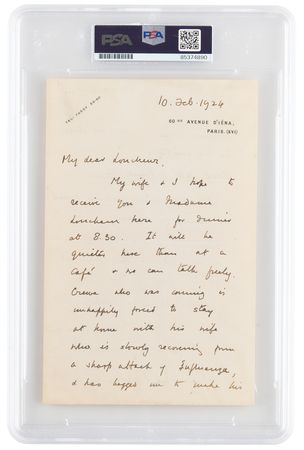 PSA
PSA
85374890
10. Feb. 1924
60 BIS AVENUE D'IÉNA,
PARIS. (XVI)
My dear Loucheur.
My wife & I hope to
receive you & Madame
Loucheur here for dinner
at 8.30. It will be
quieter here than at a
Café & we can talk freely.
Crewe who was coming is
unhappily forced to stay
at home with his wife
who is slowly recovering from
a sharp attack of Influenza,
& has begged me to make his